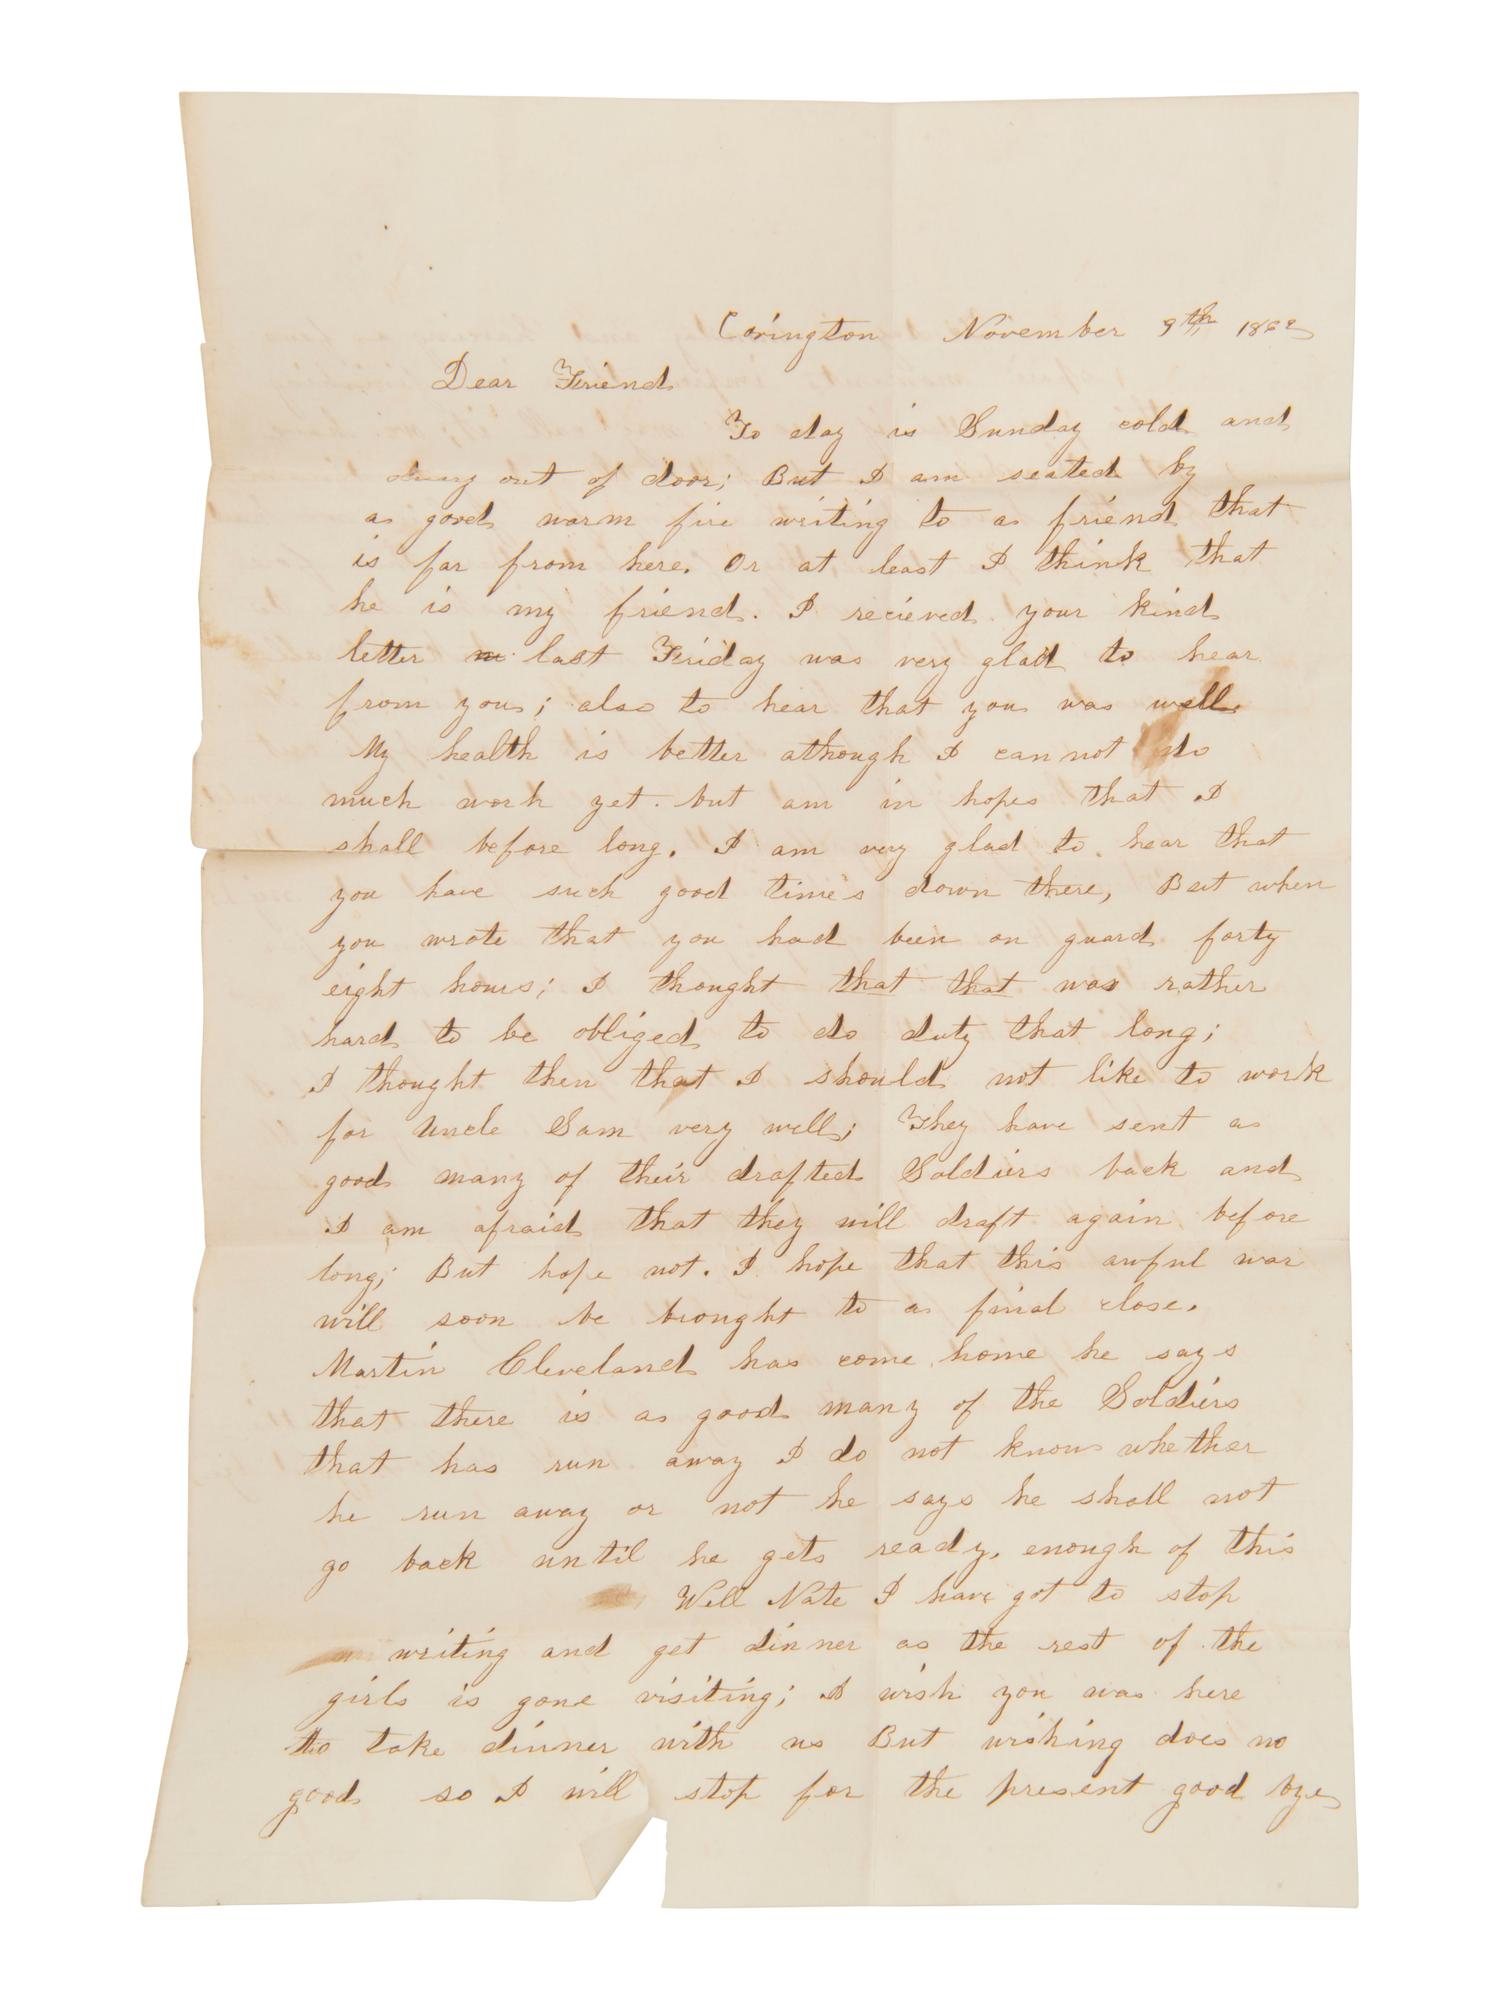 Covington November 9th 1862
Dear Friend
To day is Sunday cold and
out of door; But I am seated by
a good warm fire writing to a friend that
is far from here. Or at least I think that
he is my friend. I recieved your kind
letter last Friday was very glad to hear
from you; also to hear that you was well.
My health is better athough I can not do
much work yet. but am in hopes that I
shall before long. I am very glad to hear that
you have such good time's down there, But when
you wrote that you had been on guard forty
eight hours; I thought that that was rather
hard to be obliged to do duty that long;
I thought then that I should not like to work
for Uncle Sam very well; They have sent a
good many of their drafted Soldiers back and
I am afraid that they will draft again before
long; But hope not. I hope that this awful war
will soon be brought to a final close.
Martin Cleveland has come home he says
that there is a good many of the Soldiers
that has run away I do not know whether
he run away or not he says he shall not
go back until he gets ready. enough of this
Well Nate I have got to stop
writing and get dinner as the rest of the
girls is gone visiting; I wish you was here
to take dinner with us But wishing does no
good so I will stop for the present good bye